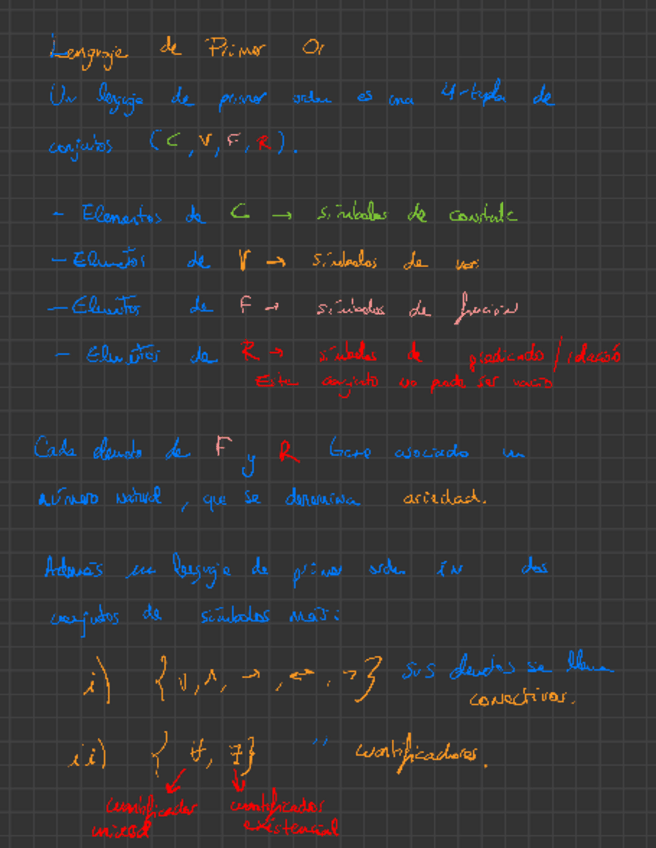 Lenguaje de Primer Or
Un lenguaje de primer orden es una 4-tupla de
conjuntos (C, V, F, R).
- Elementos de C → símbolos de constante
- Elementos de V → símbolos de var
- Elementos de F → símbolos de función
- Elementos de R → símbolos de predicado/relación
Este conjunto no puede ser vacío
Cada elemento de F y R tiene asociado un
número natural, que se denomina ariedad.
Además un lenguaje de primer orden dos
conjuntos de símbolos más:
i) {∨, ∧, →, ↔, ¬} sus elementos se llaman
conectivos.
ii) {∀, ∃} " cuantificadores.
cuantificador cuantificador
universal existencial